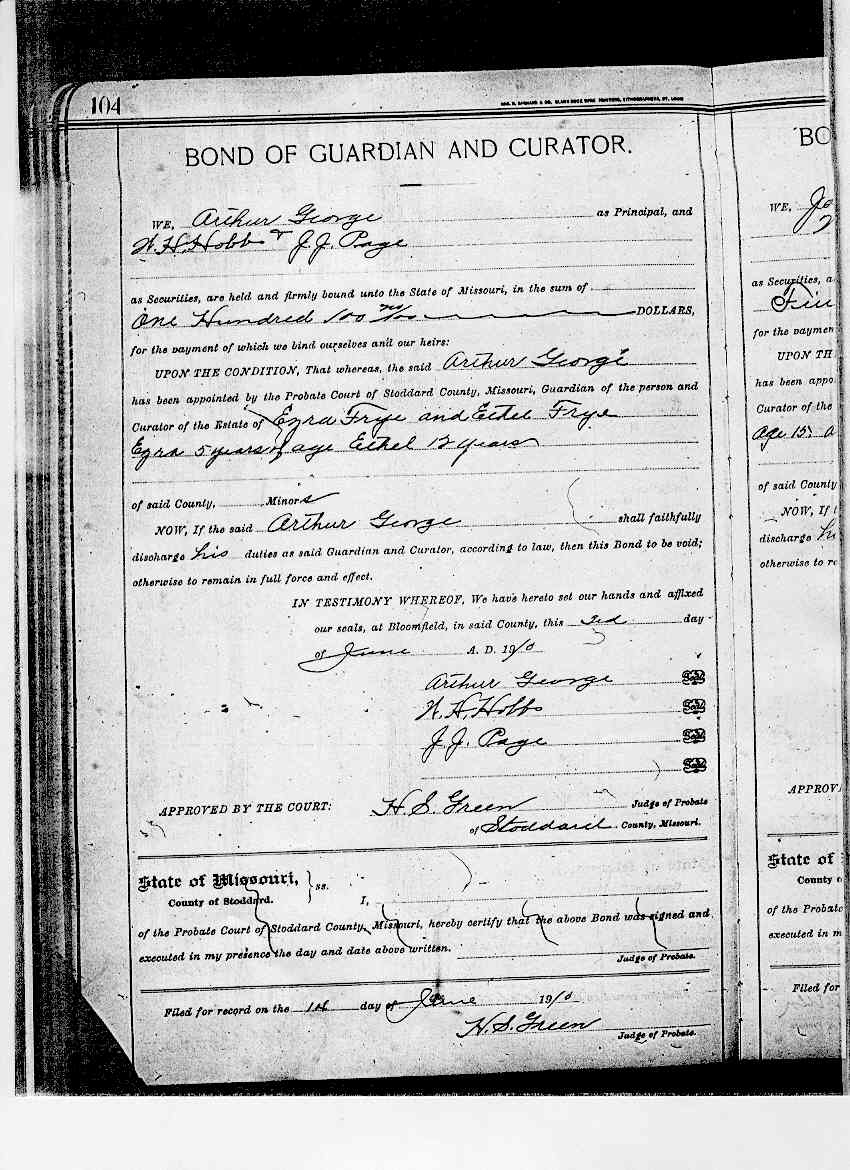 104
GEO. D. BARNARD & CO. BLANK BOOK MFRS PRINTERS, LITHOGRAPHERS, ST. LOUIS
BOND OF GUARDIAN AND CURATOR.
WE, Arthur George as Principal, and
W. H. Hobbs & J. J. Page
as Securities, are held and firmly bound unto the State of Missouri, in the sum of
One Hundred 100 no/100 DOLLARS,
for the payment of which we bind ourselves and our heirs:
UPON THE CONDITION, That whereas, the said Arthur George
has been appointed by the Probate Court of Stoddard County, Missouri, Guardian of the person and
Curator of the Estate of Ezra Frye and Ethel Frye
Ezra 5 years of age Ethel 12 years
of said County, Minors
NOW, If the said Arthur George shall faithfully
discharge his duties as said Guardian and Curator, according to law, then this Bond to be void;
otherwise to remain in full force and effect.
IN TESTIMONY WHEREOF, We have hereto set our hands and affixed
our seals, at Bloomfield, in said County, this day
of June A. D. 1910
Arthur George Seal
W. H. Hobbs Seal
J. J. Page Seal
Seal
APPROVED BY THE COURT: H. S. Green Judge of Probate
of Stoddard County, Missouri.
State of Missouri, } ss.
County of Stoddard. I,
of the Probate Court of Stoddard County, Missouri, hereby certify that the above Bond was signed and
executed in my presence the day and date above written.
Judge of Probate.
Filed for record on the 1st day of June 1910
H. S. Green
Judge of Probate.
BO
WE, Jo
as Securities, a
for the paymen
UPON TH
has been appo
Curator of the
Age 15; a
of said County
NOW, If t
discharge hi
otherwise to re
APPROV
State of
County o
of the Probate
executed in m
Filed for